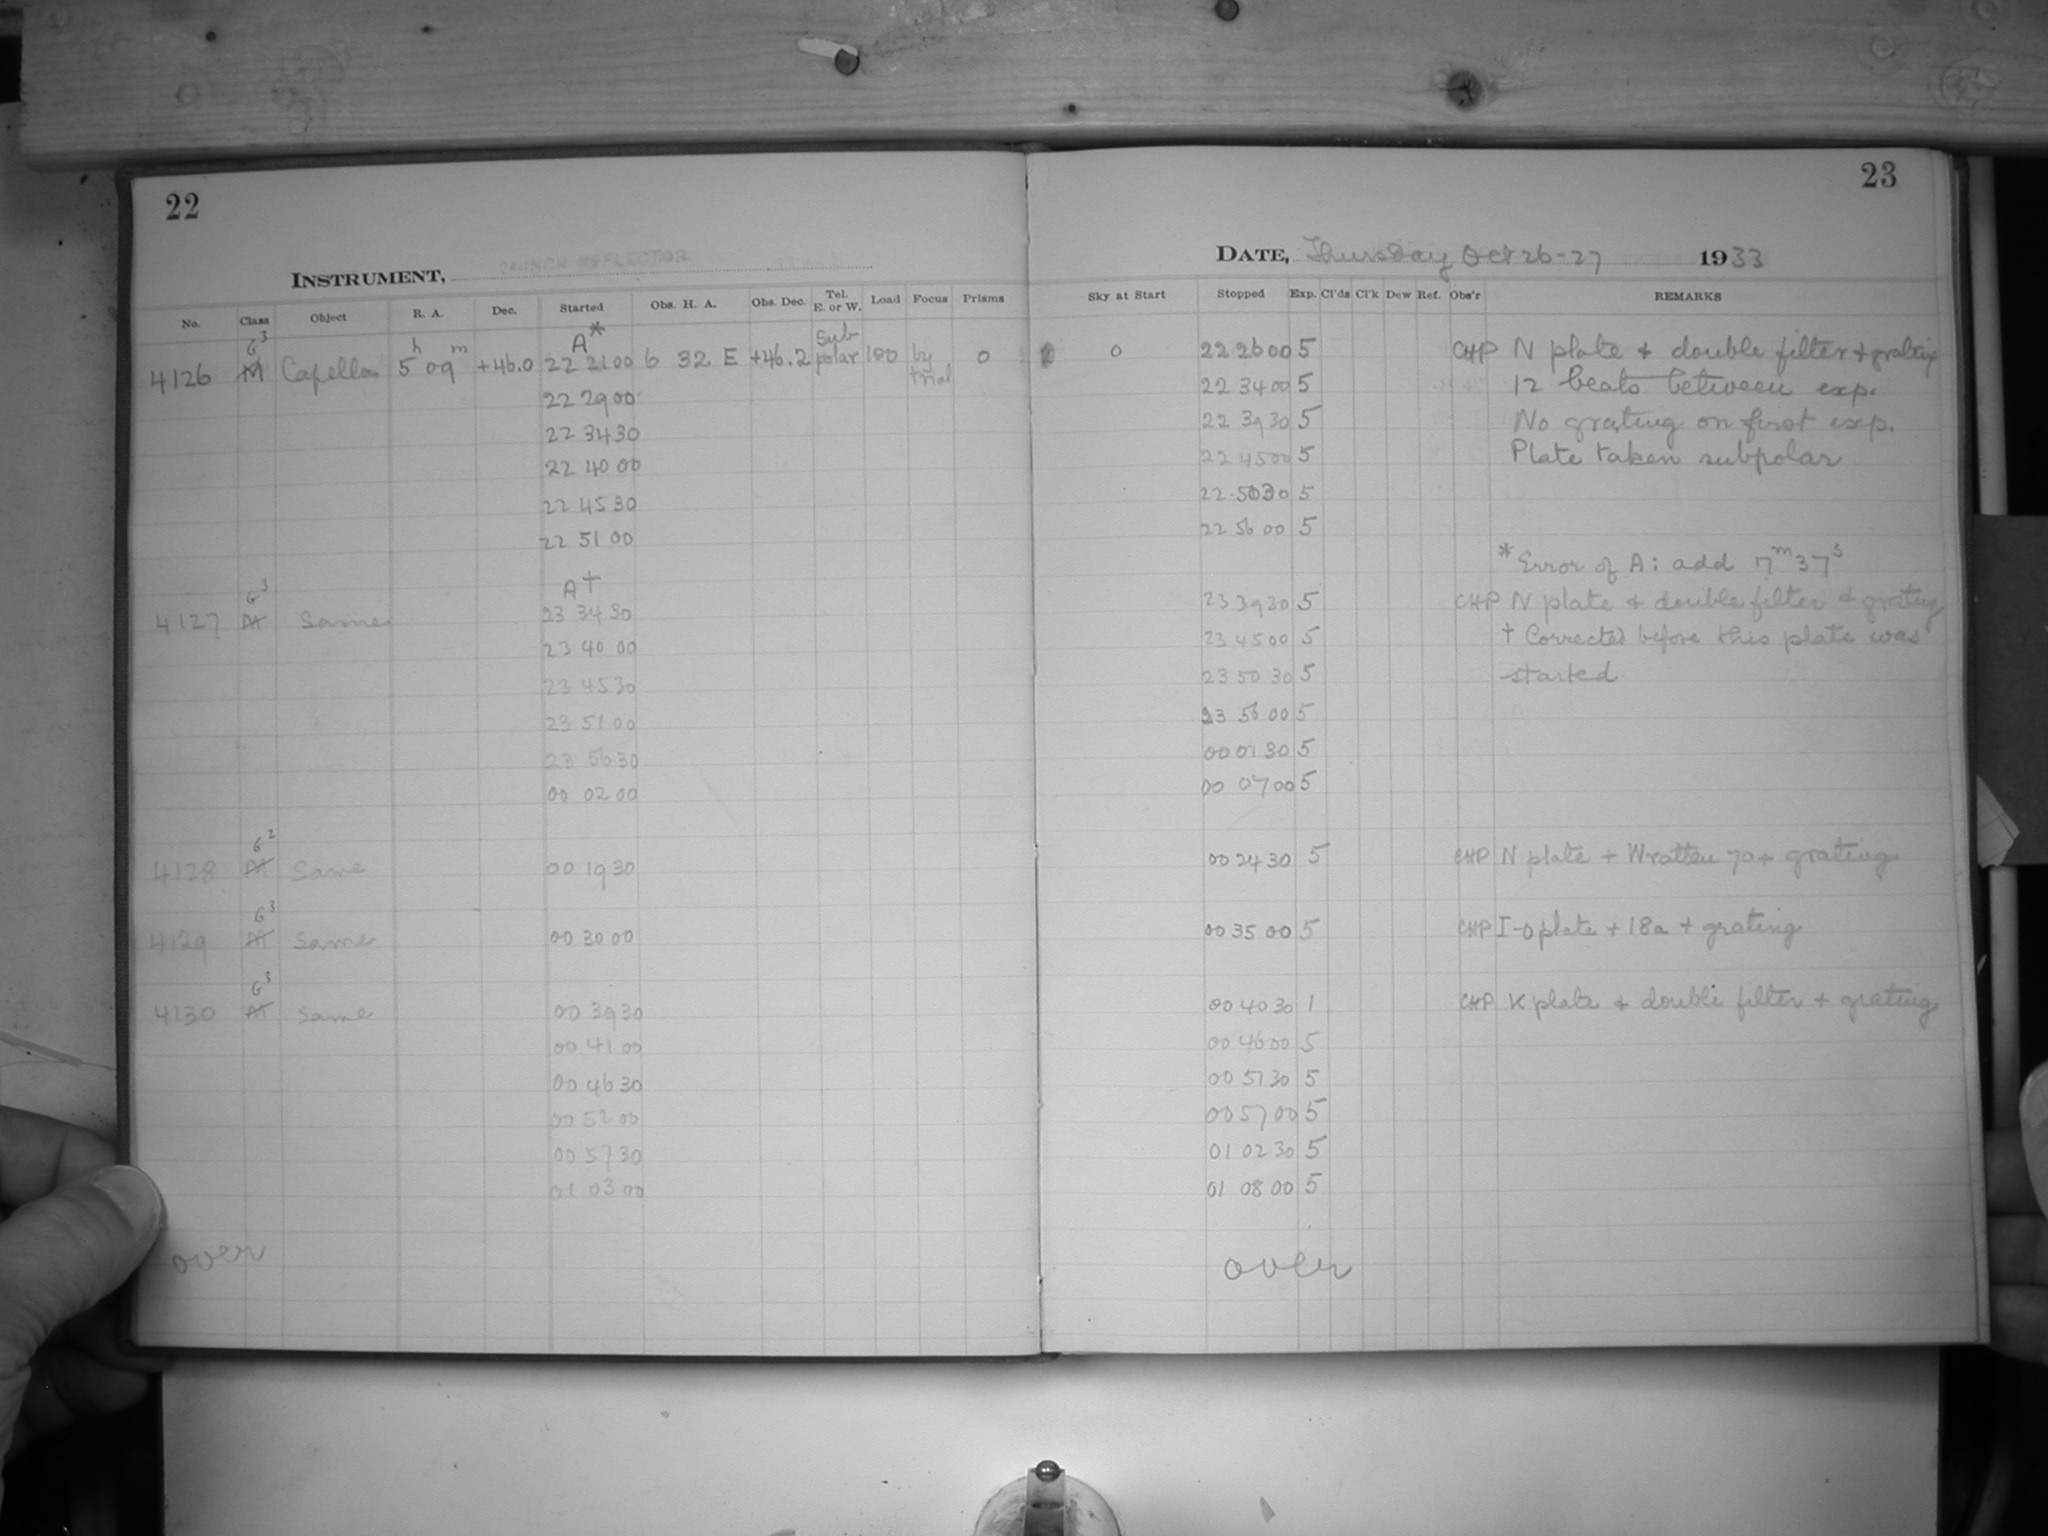 22
INSTRUMENT, 24 INCH REFLECTOR
No. Class Object R. A. Dec. Started Obs. H. A. Obs. Dec. Tel. E. or W. Load Focus Prisms
A*
4126 G3 M Capella 5h 09m +46.0 22 21 00 6 32 E +46.2 Sub- polar 100 by trial 0
22 29 00
22 34 30
22 40 00
22 45 30
22 51 00
A†
4127 G3 M Same 23 34 30
23 40 00
23 45 30
23 51 00
23 56 30
00 02 00
4128 G2 M Same 00 19 30
4129 G3 M Same 00 30 00
4130 G3 M Same 00 39 30
00 41 00
00 46 30
00 52 00
00 57 30
01 03 00
over
23
DATE, Thursday Oct 26-27 1933
Sky at Start Stopped Exp. Cl'ds Cl'k Dew Ref. Obs'r REMARKS
0 22 26 00 5 CHP N plate + double filter + grating
22 34 00 5 12 beats between exp.
22 39 30 5 No grating on first exp.
22 45 00 5 Plate taken subpolar
22 50 30 5
22 56 00 5
* Error of A: add 7m 37s
23 39 30 5 CHP N plate + double filter + grating
23 45 00 5 † Corrected before this plate was
23 50 30 5 started
23 56 00 5
00 01 30 5
00 07 00 5
00 24 30 5 CHP N plate + Wratten 70 + grating
00 35 00 5 CHP I-0 plate + 18a + grating
00 40 30 1 CHP K plate + double filter + grating
00 46 00 5
00 51 30 5
00 57 00 5
01 02 30 5
01 08 00 5
over